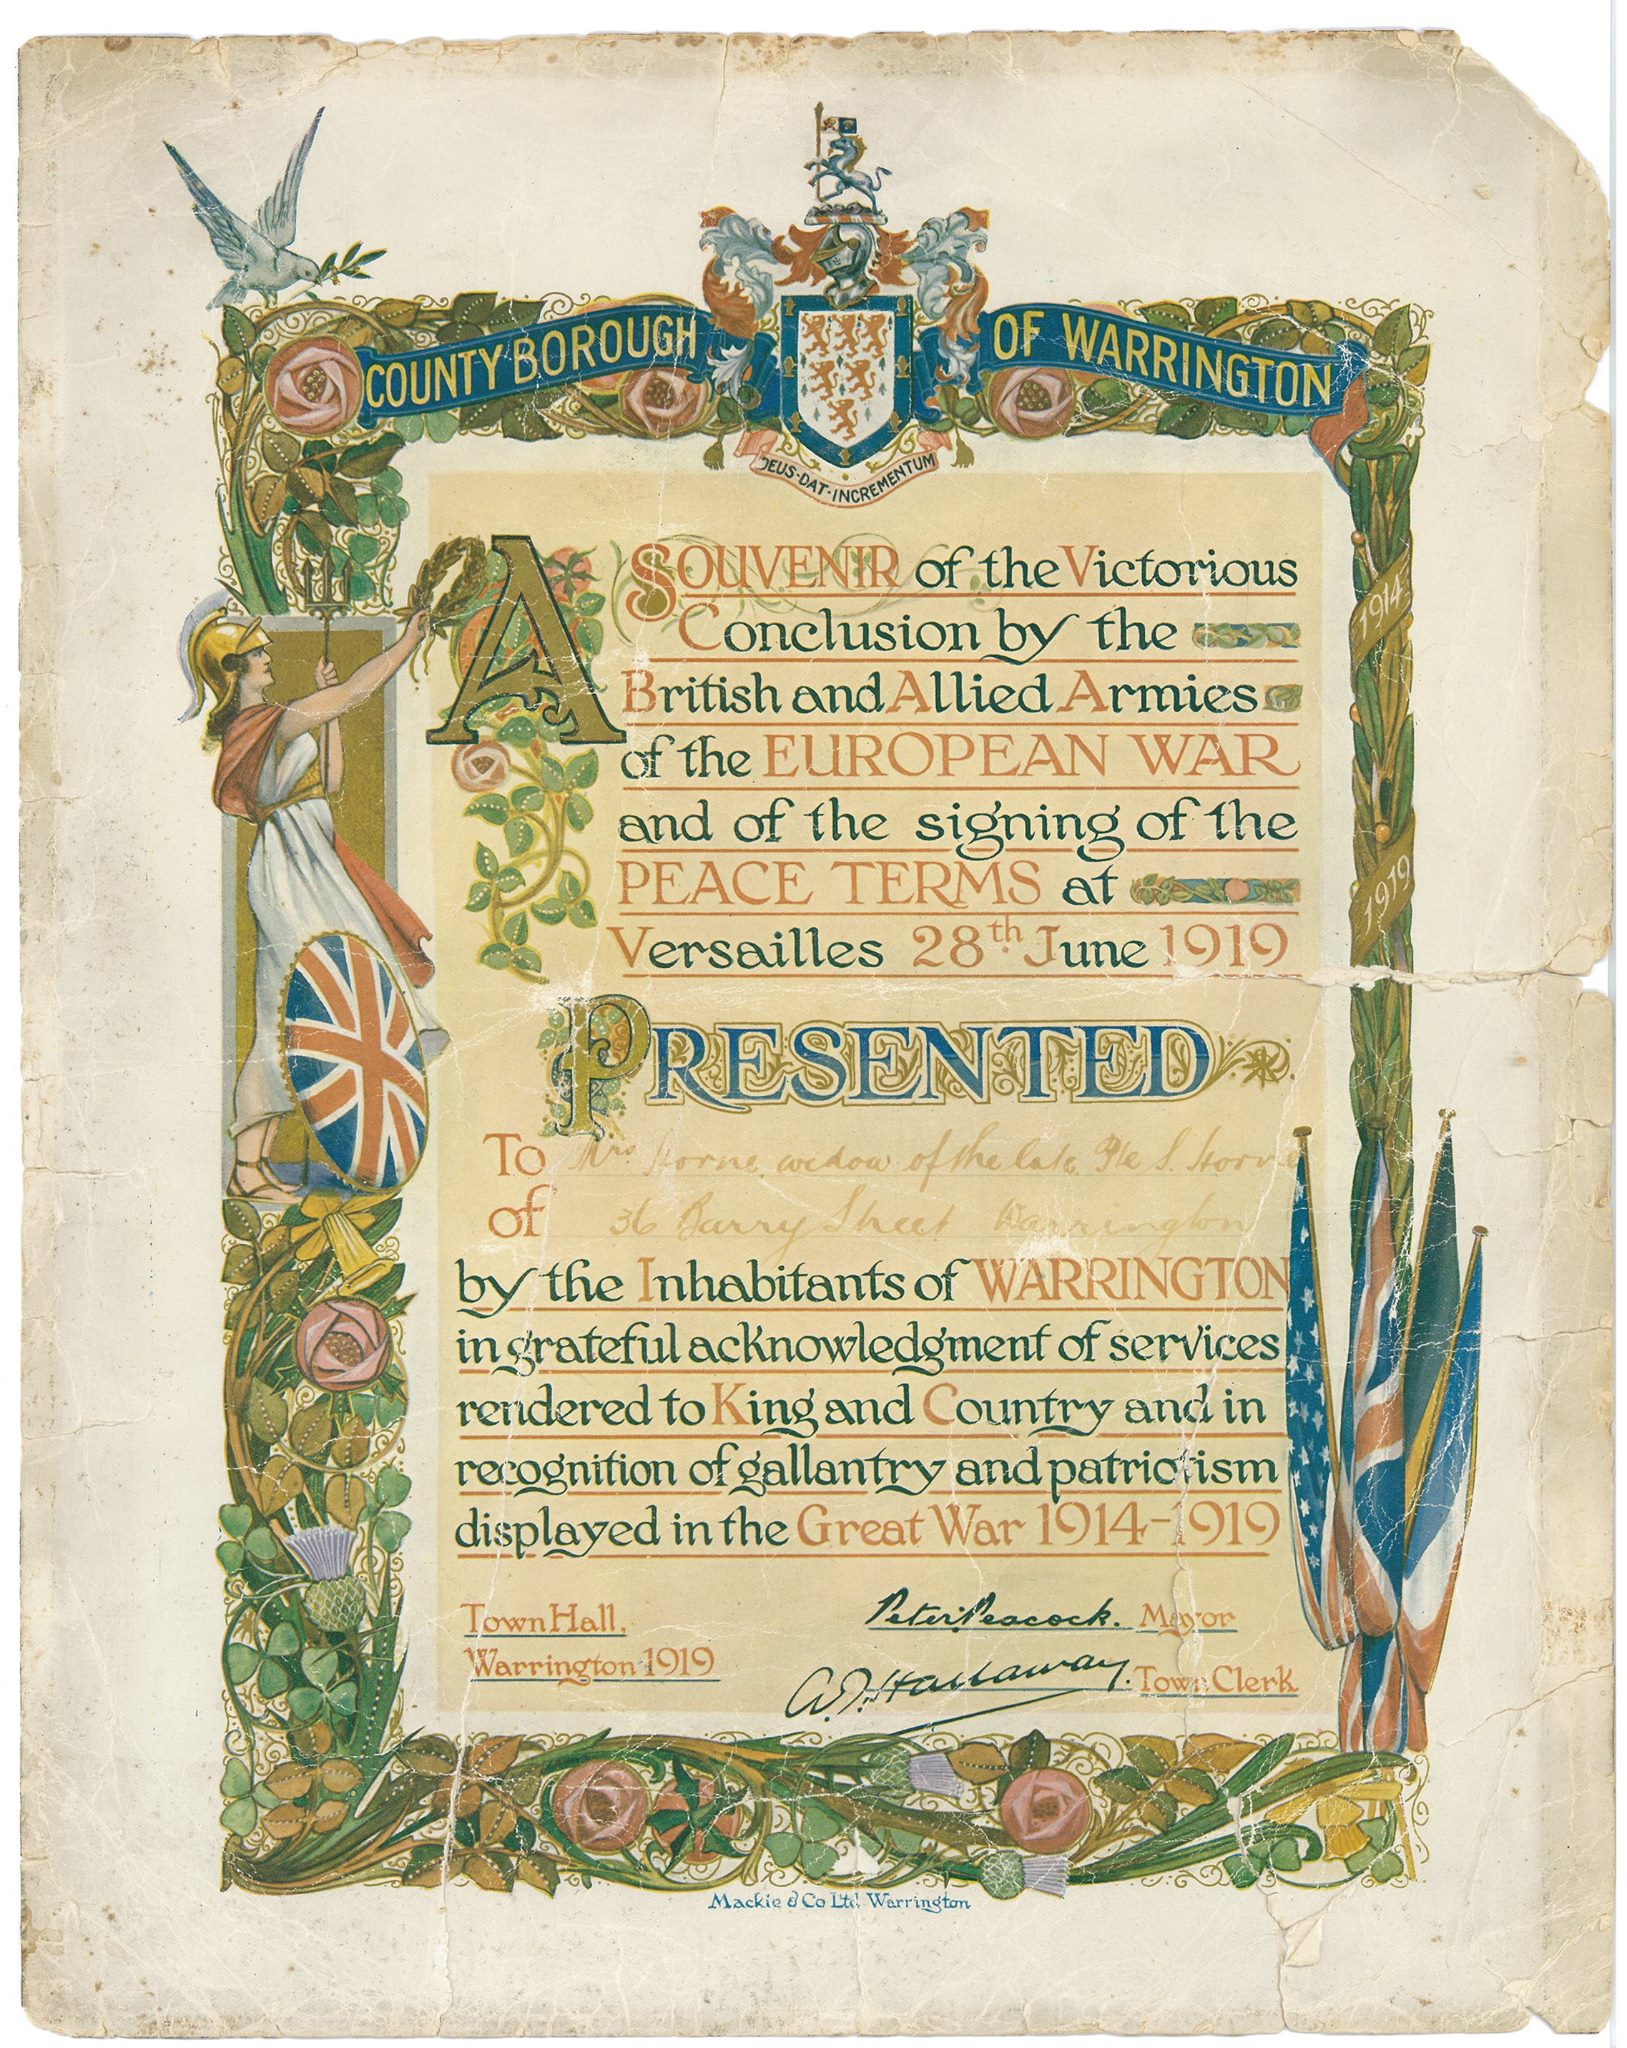 COUNTY BOROUGH OF WARRINGTON
DEUS·DAT·INCREMENTUM
A SOUVENIR of the Victorious
Conclusion by the
British and Allied Armies
of the EUROPEAN WAR
and of the signing of the
PEACE TERMS at
Versailles 28th June 1919
1914-
1919
PRESENTED
To Mrs Horne widow of the late Pte S. Horne
of 36 Barry Street Warrington
by the Inhabitants of WARRINGTON
in grateful acknowledgment of services
rendered to King and Country and in
recognition of gallantry and patriotism
displayed in the Great War 1914-1919
Town Hall,
Warrington 1919
Peter Peacock. Mayor
Hallaway. Town Clerk
Mackie & Co Ltd. Warrington